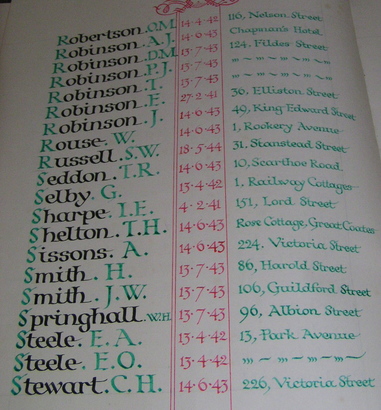 Robertson. O.M. 14·4·42 116, Nelson Street
Robinson. A.J. 14·6·43 Chapman's Hotel
Robinson. D.M. 13·7·43 124, Fildes Street
Robinson. P.J. 13·7·43 " "
Robinson. T. 13·7·43 " "
Robinson. E. 27·2·41 36, Elliston Street
Robinson. J. 14·6·43 49, King Edward Street
Rouse. W. 14·6·43 1, Rookery Avenue
Russell. S.W. 18·5·44 31, Stanstead Street
Seddon. T.R. 14·6·43 10, Scarthoe Road
Selby. G. 13·4·42 1, Railway Cottages
Sharpe. I.E. 4·2·41 151, Lord Street
Shelton. T.H. 14·6·43 Rose Cottage, Great Coates
Sissons. A. 14·6·43 224, Victoria Street
Smith. H. 13·7·43 86, Harold Street
Smith. J.W. 13·7·43 106, Guildford Street
Springhall. W.H. 13·7·43 96, Albion Street
Steele. E.A. 13·4·42 13, Park Avenue
Steele. E.O. 13·4·42 " "
Stewart. C.H. 14·6·43 226, Victoria Street